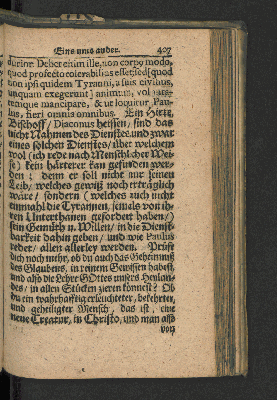 Eins ums ander. 407
durior. Debet enim ille, non corpꝰ modo,
quod profecto tolerabilius esset (sed quod
non ipsi quidem Tyranni, a suis civibus,
unquam exegerunt) animum, voluntatemque
mancipare, & ut loquitur Paulus,
fieri omnia omnibus. Ein Hirt/
Bischoff / Diaconus heissen, sind das
nicht Nahmen des Dienstes und zwar
eines solchen Dienstes / über welchem
wol (ich rede nach Menschlicher Weise)
kein härterer kan gefunden werden
: denn er soll nicht nur seinen
Leib / welches gewiß noch erträglich
wäre / sondern (welches auch nicht
einmahl die Tyrannen, jemals von ihren
Unterthanen gefordert haben /)
sein Gemüth u. Willen / in die Dienstbarkeit
dahin geben / und wie Paulus
redet / allen allerley werden. Prüft
dich noch mehr, ob du auch das Geheimniß
des Glaubens, in reinem Gewissen habest,
und also die Lehre GOttes unsers Heylandes
/ in allen Stücken zieren könnest? Ob
du ein wahrhafftig erleuchteter, bekehrter,
und geheiligter Mensch, das ist, eine
neue Creatur, in Christo, und man also
von